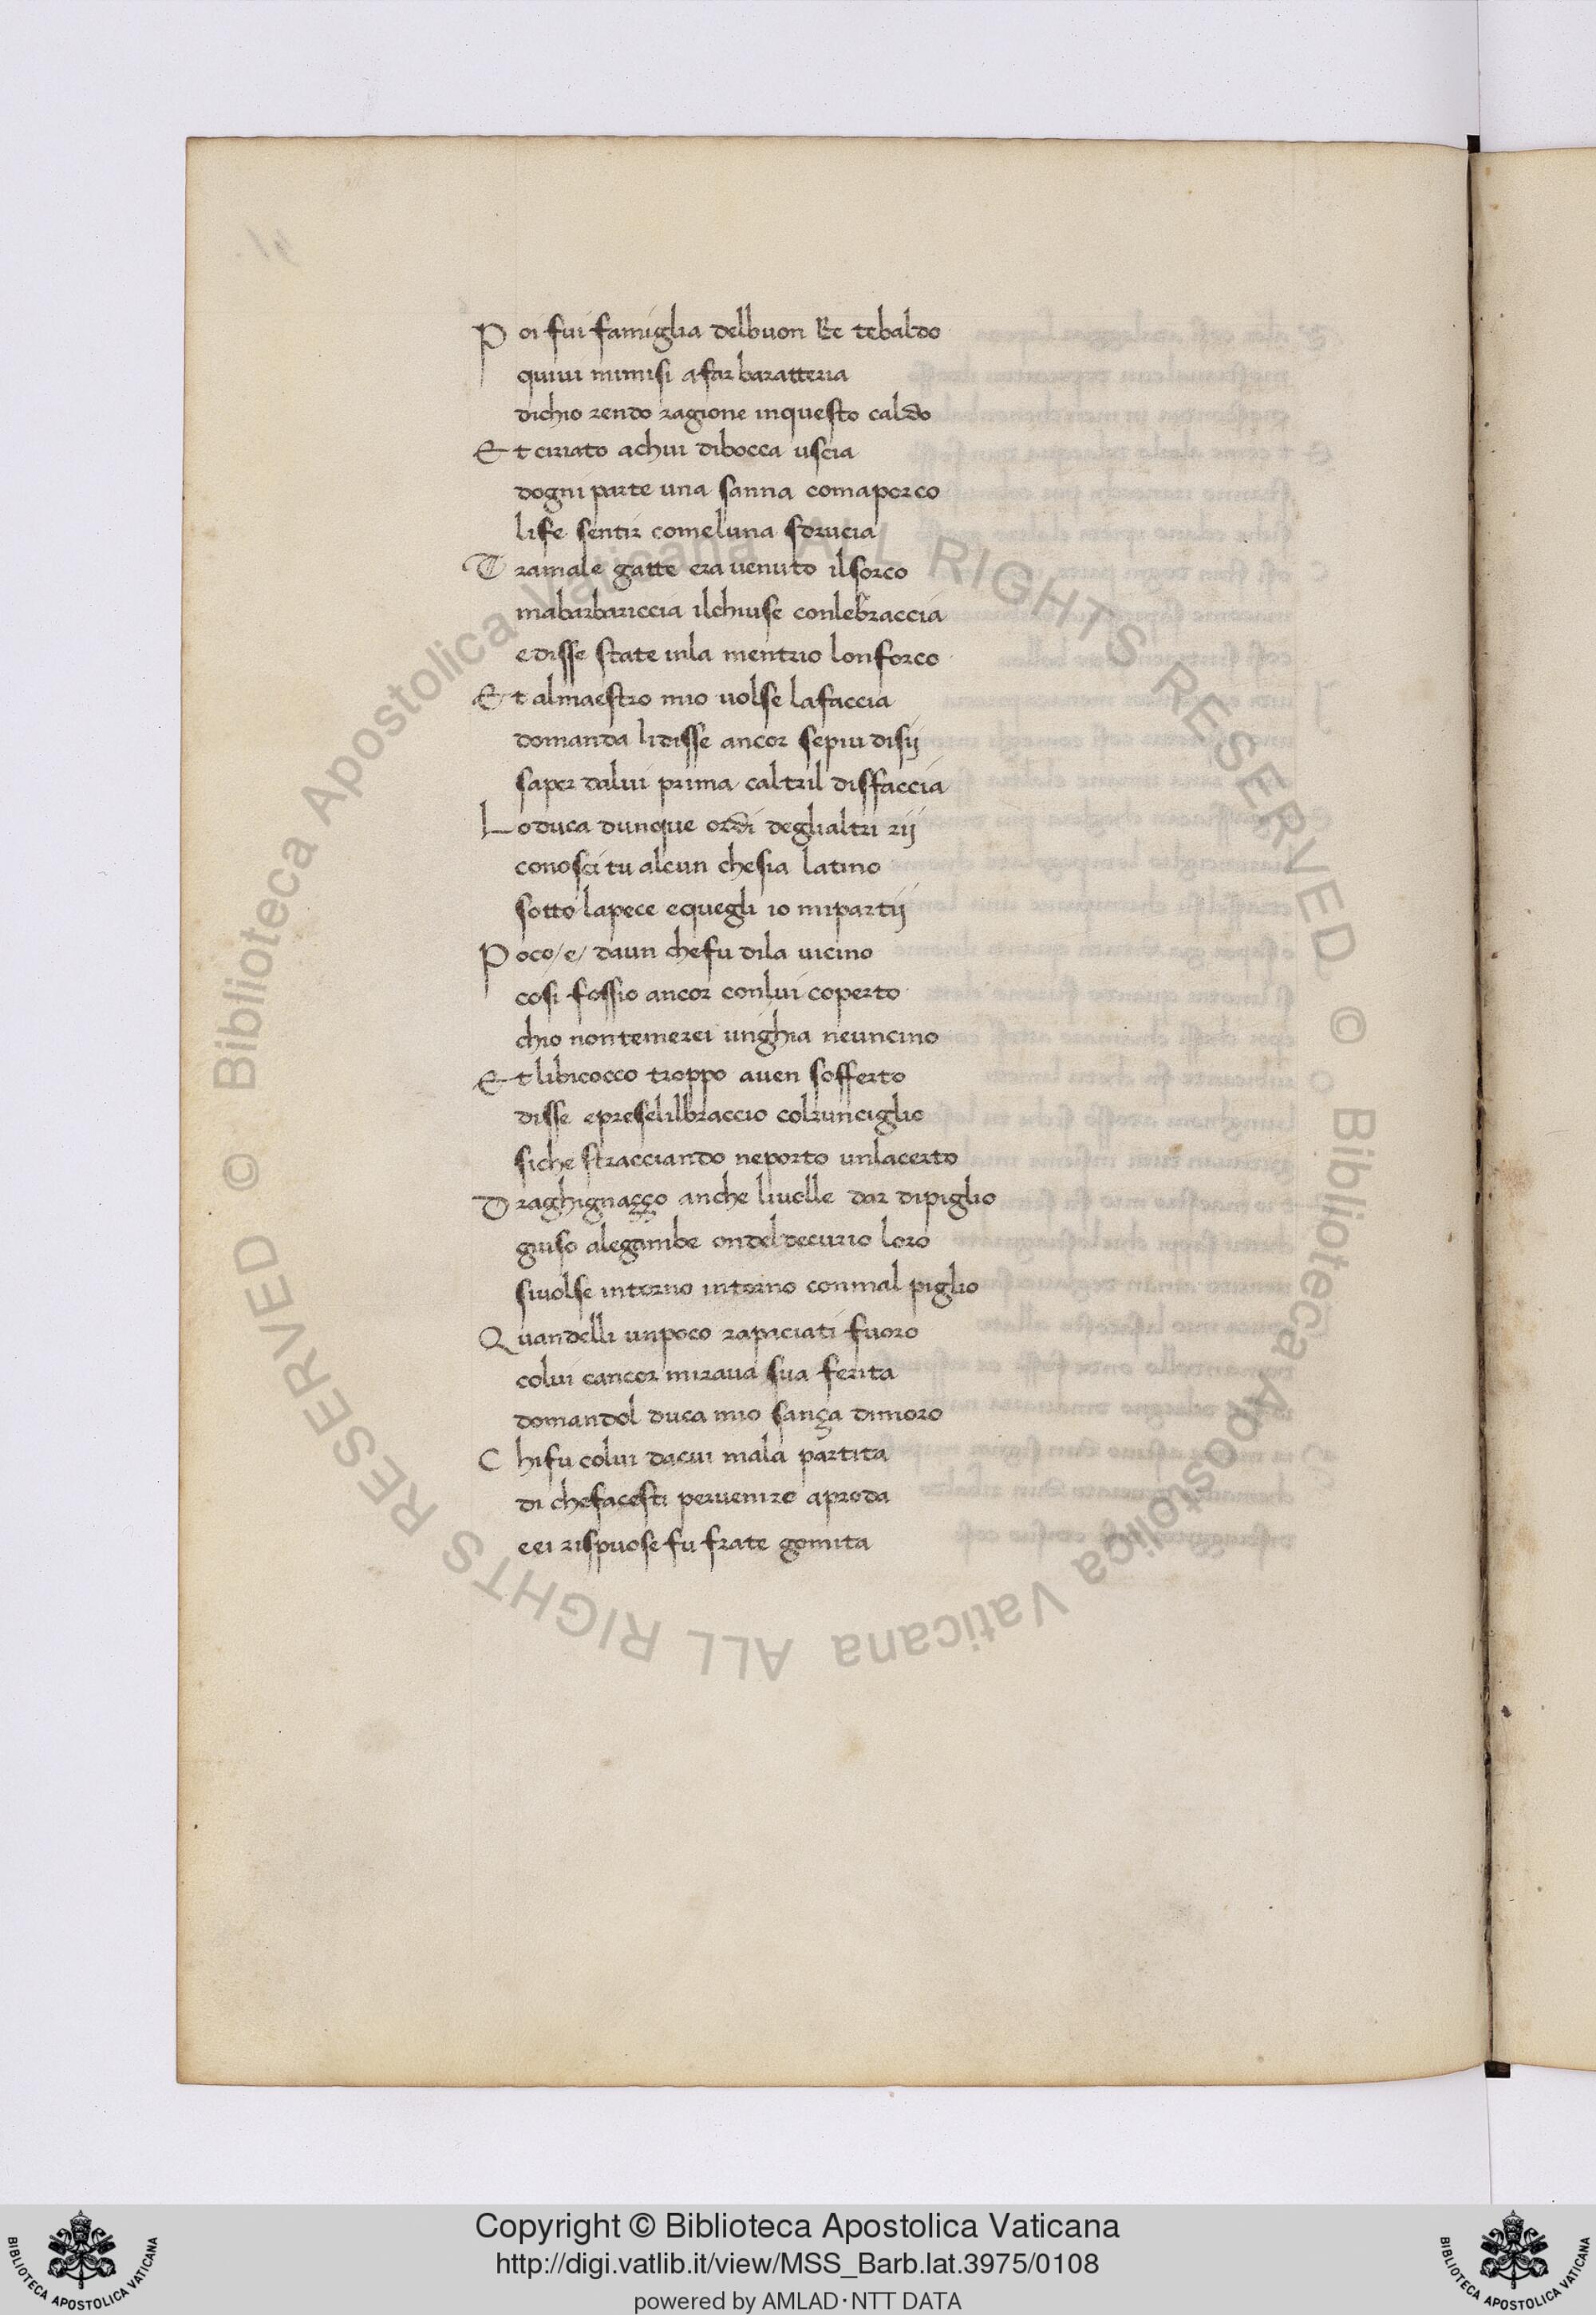 Poi fui famiglia delbuon Re tebaldo
quiui mimisi afar baratteria
dichio rendo ragione inquesto caldo
Et ciriato achui dibocca uscia
dogni parte una sanna comaporco
life sentir comeluna sdrucia
Tramale gatte era uenuto ilsorco
mabarbariccia ilchiuse conlebraccia
edisse state inla mentrio lonforco
Et almaestro mio uolse lafaccia
domanda lidisse ancor sepiu disij
saper dalui prima caltril disfaccia
Loduca dunque ordi deglialtri rij
conosci tu alcun chesia latino
sotto lapece equegli io mipartij
Poco/e/ daun chefu dila uicino
cosi fossio ancor conlui coperto
chio nontemerei unghia neuncino
Et libicocco troppo auen sofferto
disse epreselilbraccio colrunciglio
siche stracciando neporto unlacerto
Draghignaçço anche liuolle dar dipiglio
giuso alegambe ondel decurio loro
siuolse intorno intorno conmal piglio
Quandelli unpoco rapaciati fuoro
colui cancor miraua sua ferita
domandol duca mio sança dimoro
Chifu colui dacui mala partita
di chefacesti peruenire aproda
eei rispuose fu frate gomita
© Biblioteca Apostolica Vaticana ALL RIGHTS RESERVED
© Biblioteca Apostolica Vaticana ALL RIGHTS RESERVED
Copyright © Biblioteca Apostolica Vaticana
http://digi.vatlib.it/view/MSS_Barb.lat.3975/0108
powered by AMLAD·NTT DATA
BIBLIOTECA APOSTOLICA VATICANA
BIBLIOTECA APOSTOLICA VATICANA